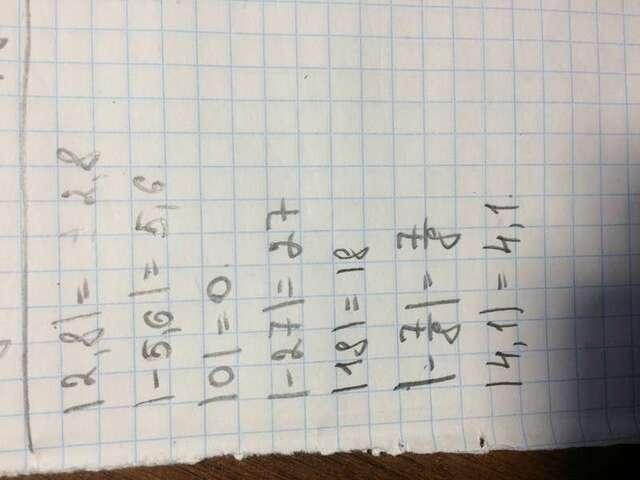 |2,8| = 2,8
|-5,6| = 5,6
|0| = 0.
|-27| = 27
|18| = 18
|-7/8| = 7/8
|4,1| = 4,1.